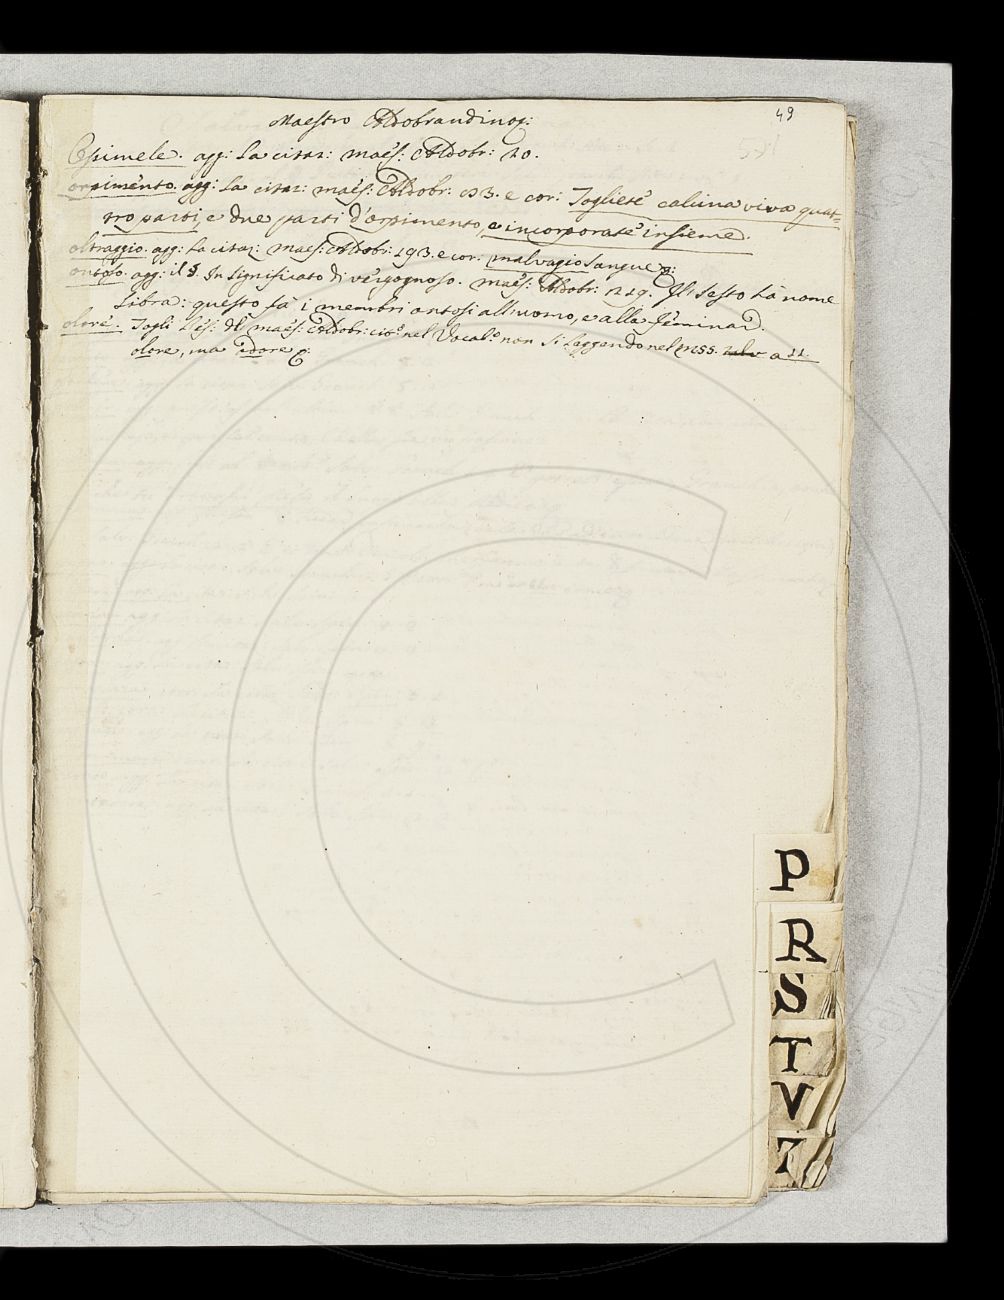 49
Maestro Aldobrandino:
Ossimele. agg: la citaz: maes: Aldobr: 20.
orpimento. agg: la citaz: maes: Aldobr: 93. e cor: Togliete calcina viva quat=
tro parti, e due parti d'orpimento, e incorporate insieme.
oltraggio. agg: la citaz: maes: Aldobr: 193. e cor: malvagio sangue
ontoso. agg: il §. In significato di vergognoso. maes: Aldobr: 229. Il sesto hà nome
Libra: questo fà i membri ontosi all'uomo, e alla feminad.
olore. Togli l'es: di maes: Aldobr: cit.º nel Vocab.º non si leggendo nel mss. a 11.
olore, ma idore
P
R
S
T
V
Z